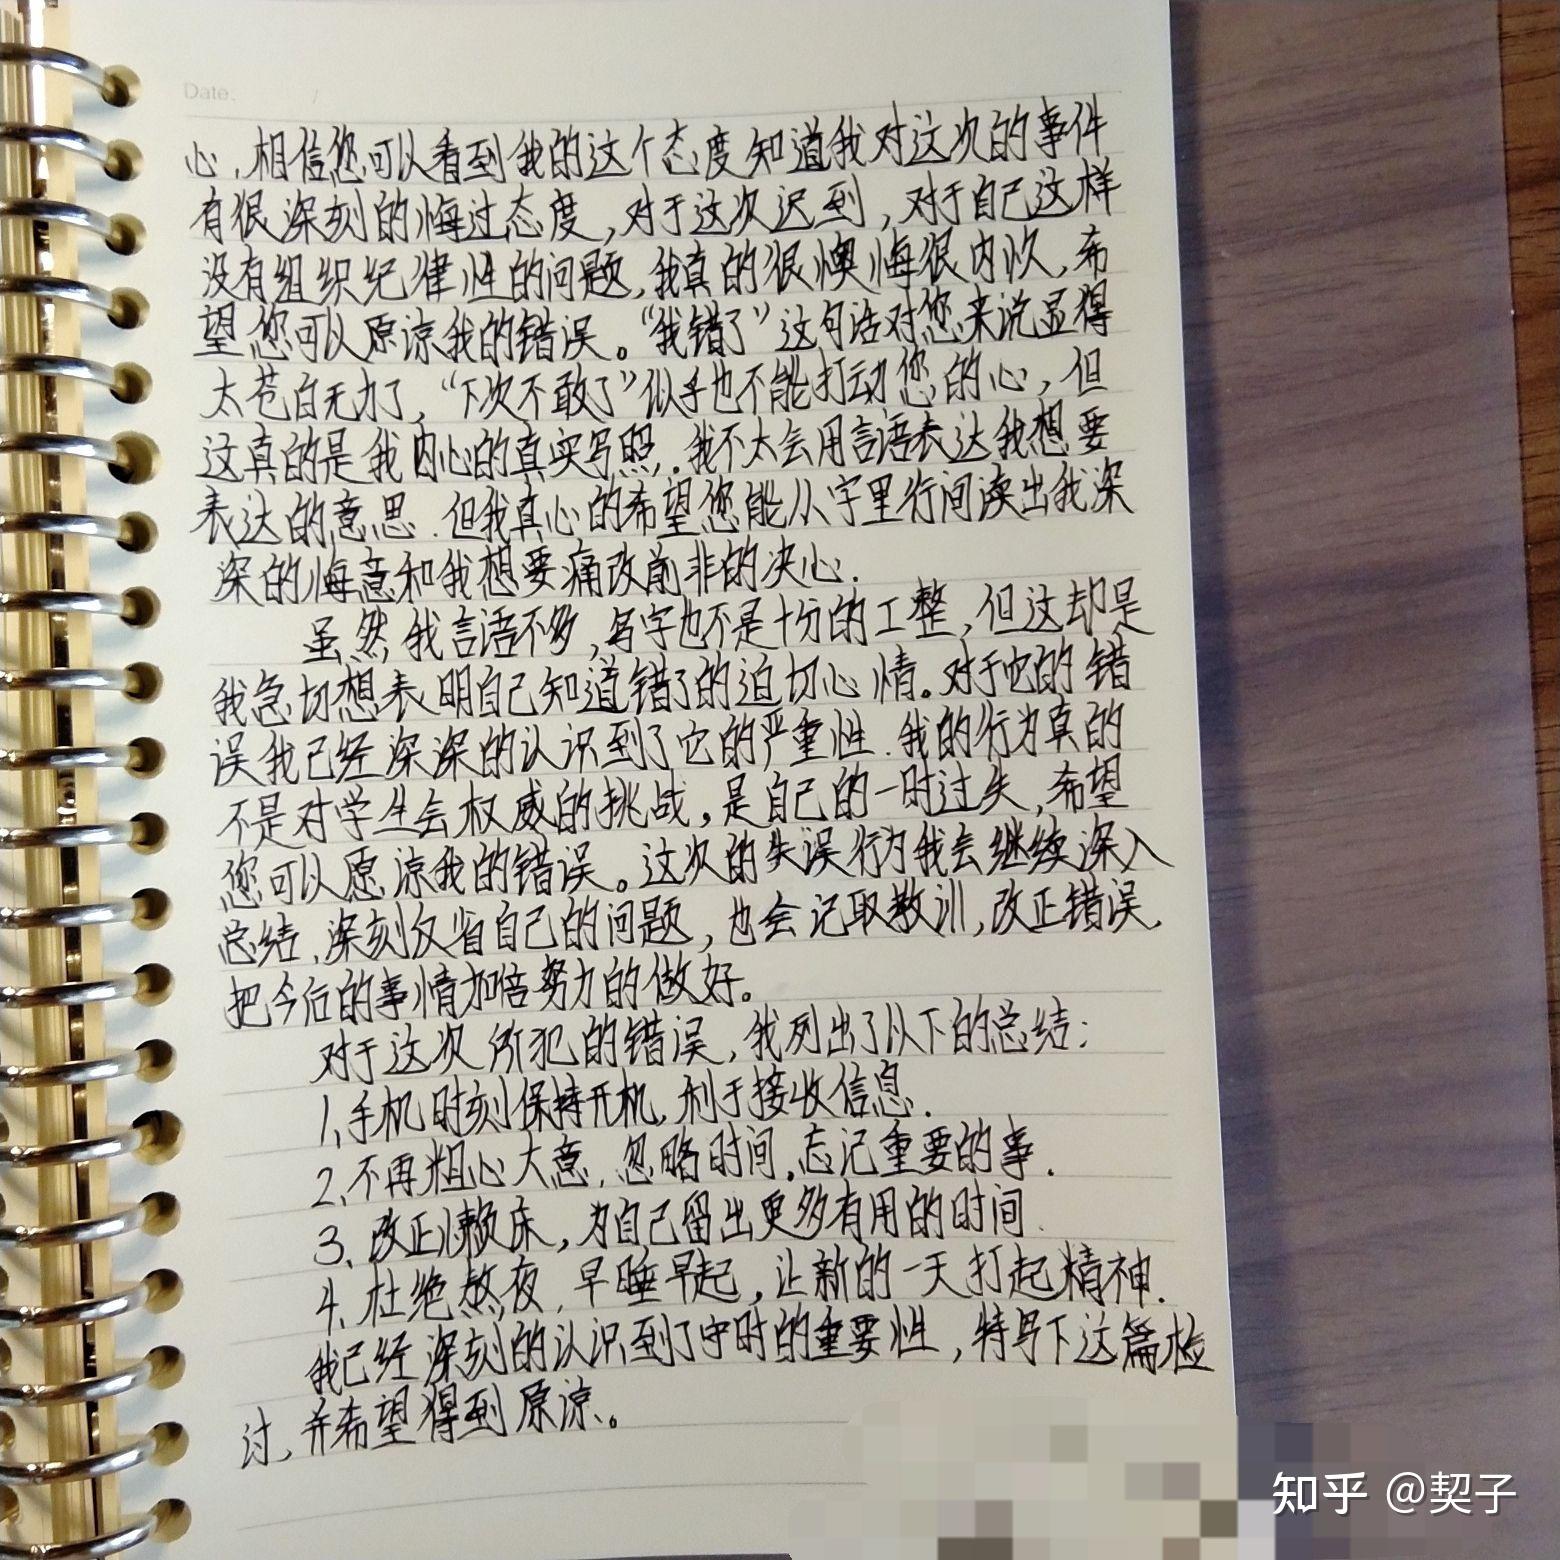 Date.      /
心,相信您可以看到我的这个态度知道我对这次的事件
有很深刻的悔过态度,对于这次迟到,对于自己这样
没有组织纪律性的问题,我真的很懊悔很内疚,希
望您可以原谅我的错误。“我错了”这句话对您来说显得
太苍白无力了,“下次不敢了”似乎也不能打动您的心,但
这真的是我内心的真实写照,我不太会用言语表达我想要
表达的意思.但我真心的希望您能从字里行间读出我深
深的悔意和我想要痛改前非的决心.
虽然我言语不多,写字也不是十分的工整,但这却是
我急切想表明自己知道错了的迫切心情。对于它的错
误我已经深深的认识到了它的严重性.我的行为真的
不是对学生会权威的挑战,是自己的一时过失,希望
您可以原谅我的错误。这次的失误行为我会继续深入
总结,深刻反省自己的问题,也会记取教训,改正错误.
把今后的事情加倍努力的做好。
对于这次所犯的错误,我列出了以下的总结:
1、手机时刻保持开机,利于接收信息.
2、不再粗心大意,忽略时间,忘记重要的事.
3、改正懒床,为自己留出更多有用的时间.
4、杜绝熬夜,早睡早起,让新的一天打起精神.
我已经深刻的认识到了守时的重要性,特写下这篇检
讨,并希望得到原谅。
知乎 @契子